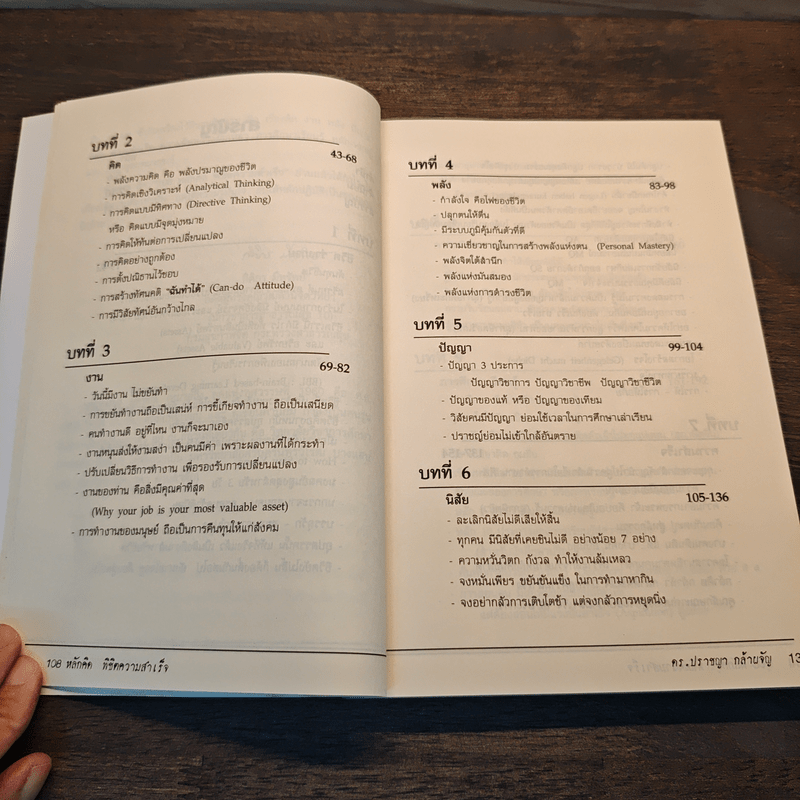 บทที่ 2
คิด
43-68
- พลังความคิด คือ พลังปรมาณูของชีวิต
- การคิดเชิงวิเคราะห์ (Analytical Thinking)
- การคิดแบบมีทิศทาง (Directive Thinking)
หรือ คิดแบบมีจุดมุ่งหมาย
- การคิดให้ทันต่อการเปลี่ยนแปลง
- การคิดอย่างถูกต้อง
- การตั้งปณิธานไว้ชอบ
- การสร้างทัศนคติ "ฉันทำได้" (Can-do Attitude)
- การมีวิสัยทัศน์อันกว้างไกล
บทที่ 3
งาน
69-82
- วันนี้มีงาน ไม่ขยันทำ
- การขยันทำงานถือเป็นเสน่ห์ การขี้เกียจทำงาน ถือเป็นเสนียด
- คนทำงานดี อยู่ที่ไหน งานก็จะมาเอง
- งานหนุนส่งให้งามสง่า เป็นคนมีค่า เพราะผลงานที่ได้กระทำ
- ปรับเปลี่ยนวิธีการทำงาน เพื่อรองรับการเปลี่ยนแปลง
- งานของท่าน คือสิ่งมีคุณค่าที่สุด
(Why your job is your most valuable asset)
- การทำงานของมนุษย์ ถือเป็นการคืนทุนให้แก่สังคม
108 หลักคิด พิชิตความสำเร็จ
บทที่ 4
พลัง
83-98
- กำลังใจ คือไฟของชีวิต
- ปลุกตนให้ตื่น
- มีระบบภูมิคุ้มกันตัวที่ดี
- ความเชี่ยวชาญในการสร้างพลังแห่งตน (Personal Mastery)
- พลังจิตใต้สำนึก
- พลังแห่งมันสมอง
- พลังแห่งการดำรงชีวิต
บทที่ 5
ปัญญา
99-104
- ปัญญา 3 ประการ
ปัญญาวิชาการ ปัญญาวิชาชีพ ปัญญาวิชาชีวิต
- ปัญญาของแท้ หรือ ปัญญาของเทียม
- วิสัยคนมีปัญญา ย่อมใช้เวลาในการศึกษาเล่าเรียน
- ปราชญ์ย่อมไม่เข้าใกล้อันตราย
บทที่ 6
นิสัย
105-136
- ละเลิกนิสัยไม่ดีเสียให้สิ้น
- ทุกคน มีนิสัยที่เคยชินไม่ดี อย่างน้อย 7 อย่าง
- ความหวั่นวิตก กังวล ทำให้งานล้มเหลว
- จงหมั่นเพียร ขยันขันแข็ง ในการทำมาหากิน
- จงอย่ากลัวการเติบโตช้า แต่จงกลัวการหยุดนิ่ง
ดร.ปราชญา กล้าผจัญ 13